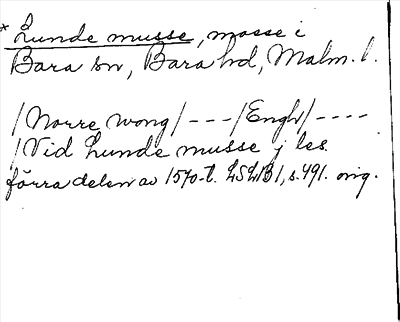 * Lunde musse, mosse i
Bara sn, Bara hd, Malm. l.
/Norre wong/ ---/Engh/----
/Vid Lunde musse j les.
förra delen av 1570-t. LSLB1, s. 491. orig.